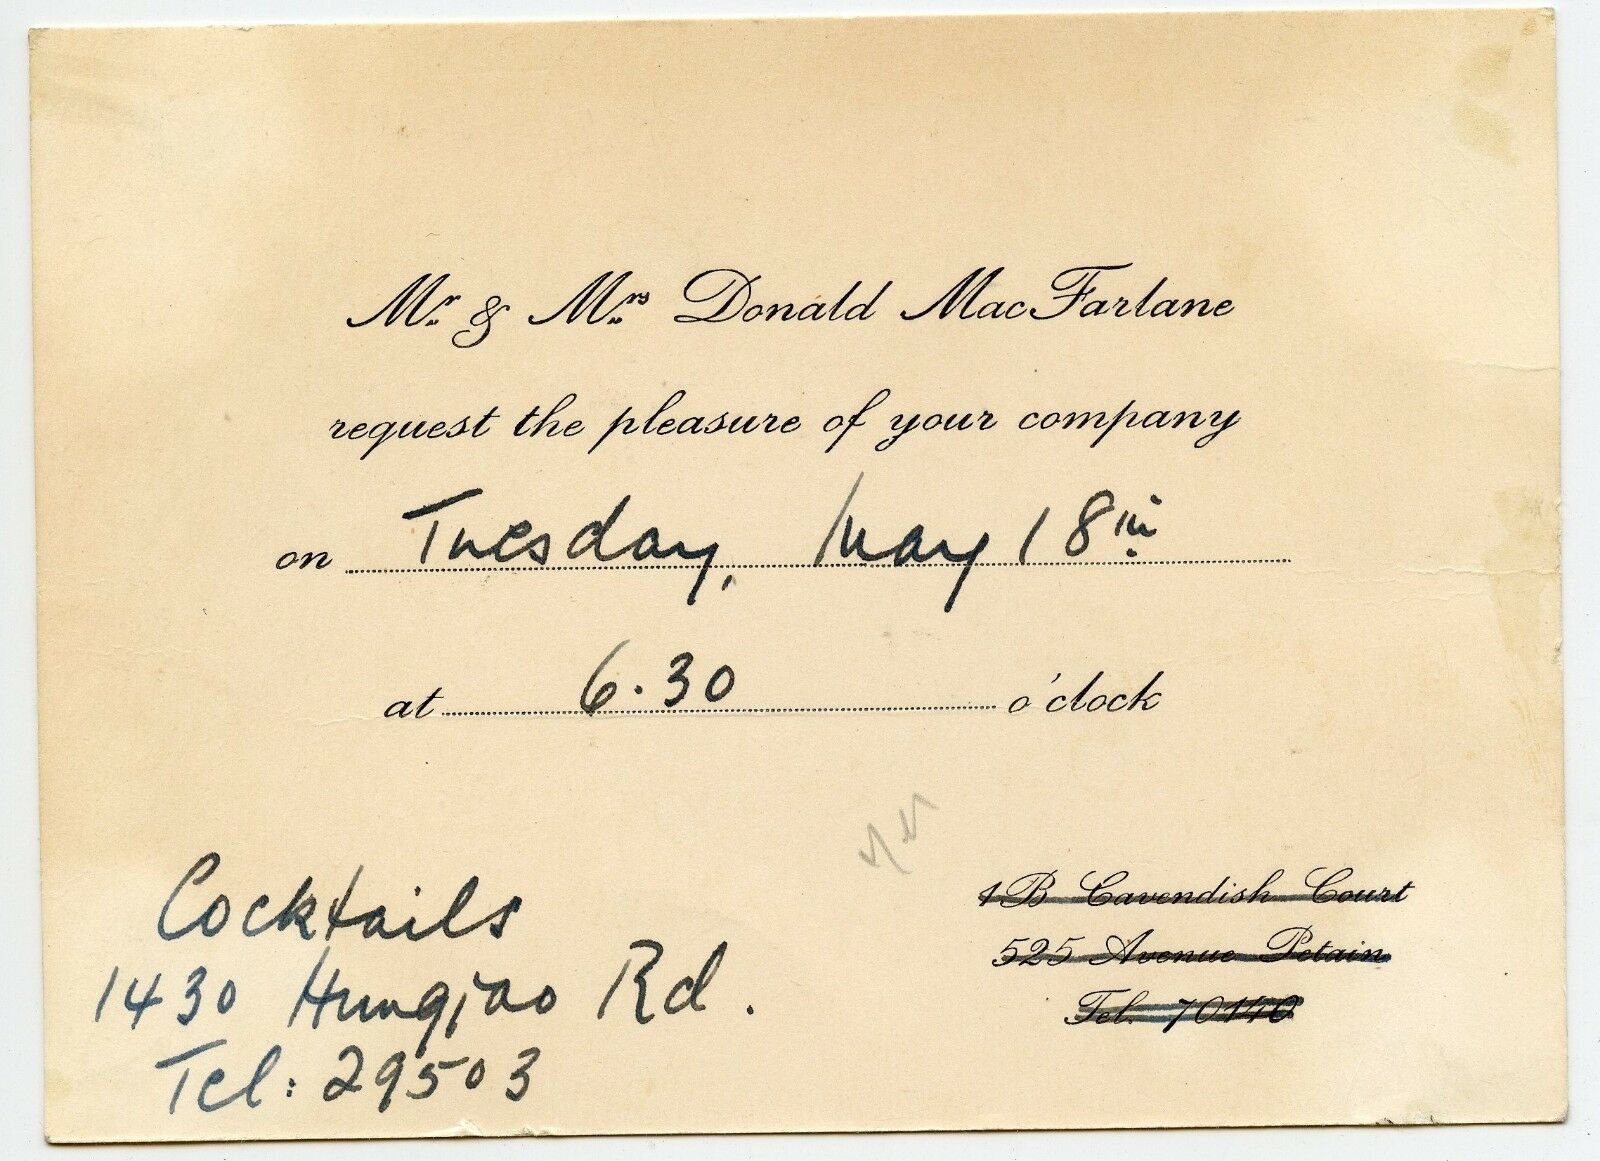 Mr. & Mrs. Donald MacFarlane
request the pleasure of your company
on Tuesday, May 18th
at 6.30 o'clock
Cocktails
1430 Hungjao Rd.
Tel: 29503
1B Cavendish Court
525 Avenue Petain
Tel. 70140